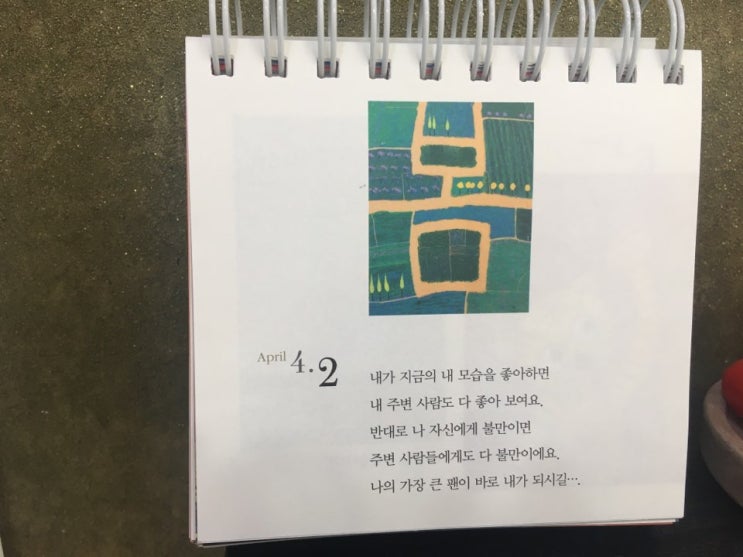 April 4.2
내가 지금의 내 모습을 좋아하면
내 주변 사람도 다 좋아 보여요.
반대로 나 자신에게 불만이면
주변 사람들에게도 다 불만이에요.
나의 가장 큰 팬이 바로 내가 되시길….